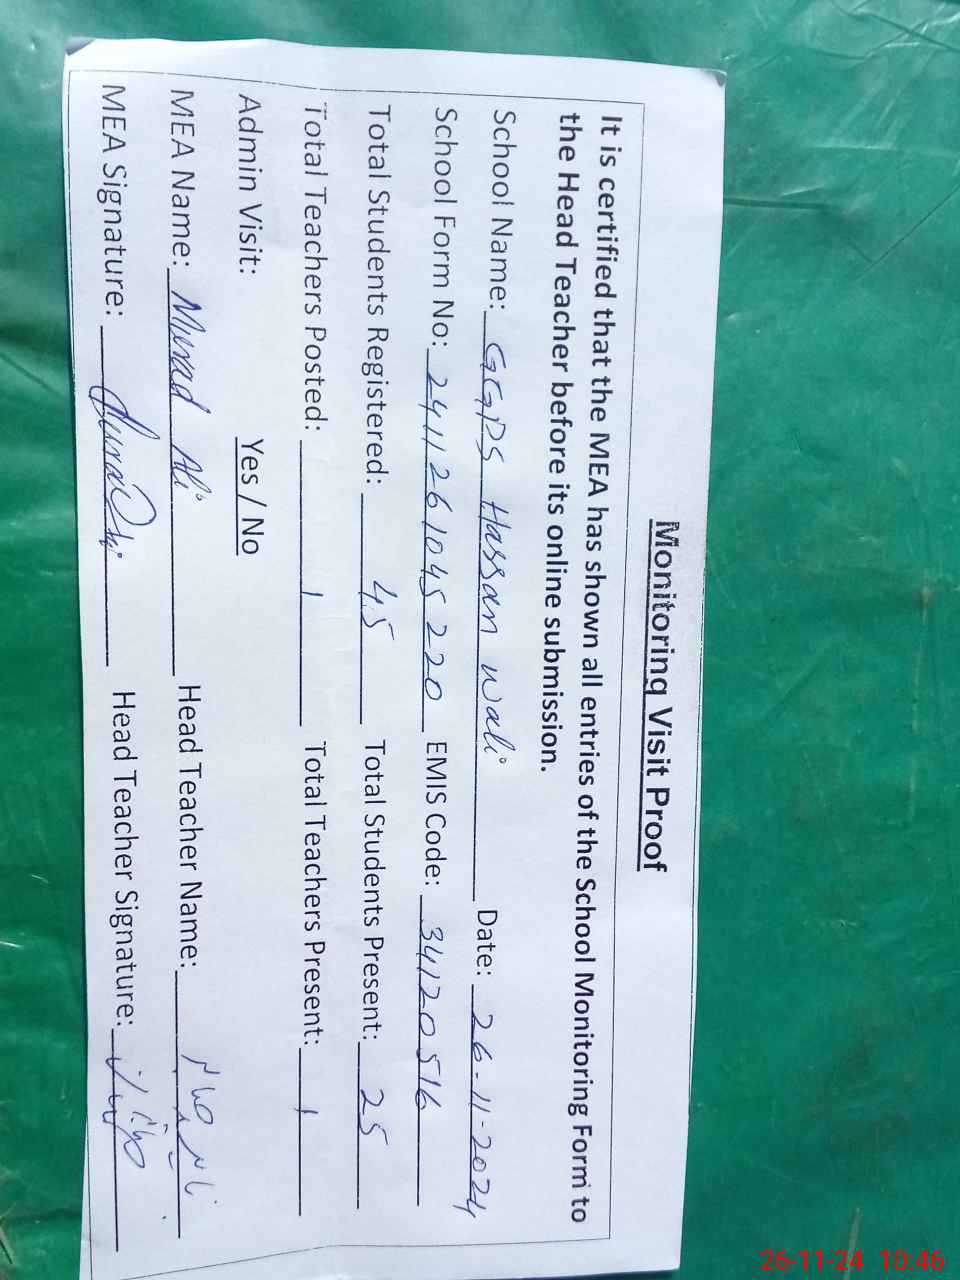 Monitoring Visit Proof
It is certified that the MEA has shown all entries of the School Monitoring Form to
the Head Teacher before its online submission.
School Name: GGPS Hassan wali Date: 26-11-2024
School Form No: 241126104S220 EMIS Code: 34120516
Total Students Registered: 45 Total Students Present: 25
Total Teachers Posted: 1 Total Teachers Present: 1
Admin Visit: Yes / No
MEA Name: Murad Ali Head Teacher Name:
MEA Signature: Head Teacher Signature:
26-11-24 10:46